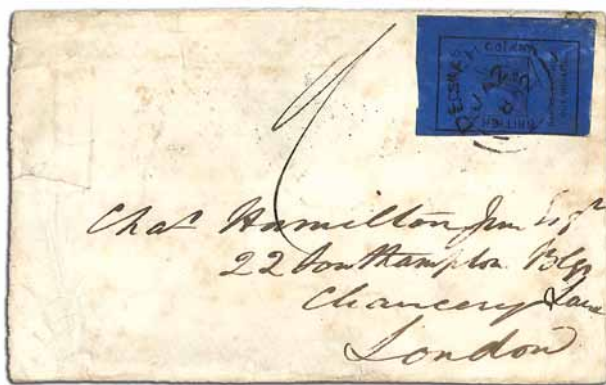 BRITISH
Chas Hamilton Jun Esqr
22 Southampton Blgs
Chancery Lane
London